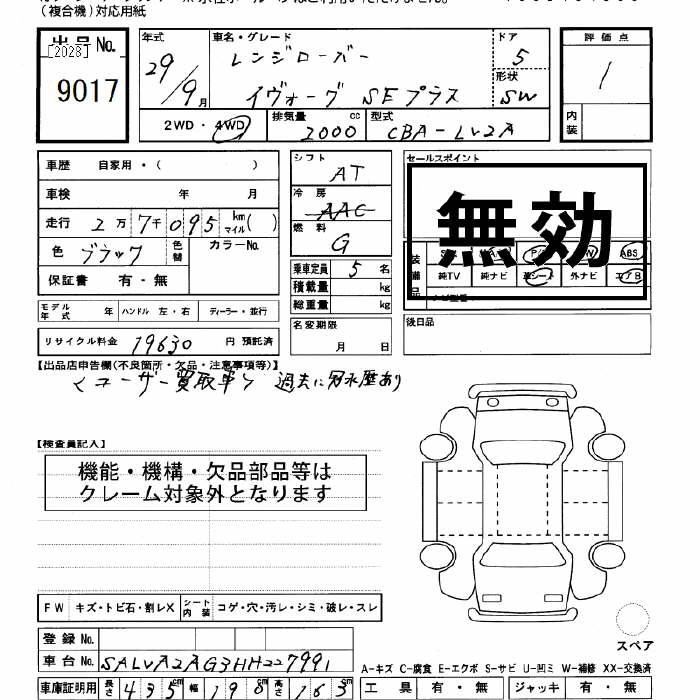 (複合機)対応用紙
出品No.
[2028]
9017
年式 29/9月
車名・グレード
レンジローバー
イヴォーグ SEプラス
ドア 5
形状 SW
評価点
1
内装
2WD・4WD
排気量 2000 cc
型式 CBA-LV2A
車歴 自家用・( )
車検 年 月
走行 2万7千095 km マイル( )
色 ブラック 色替 カラーNo.
保証書 有・無
モデル年式 年 ハンドル 左・右 ディーラー・並行
リサイクル料金 19630 円 預託済
シフト AT
冷房 AAC
燃料 G
乗車定員 5 名
積載量 kg
総重量 kg
名変期限
月 日
セールスポイント
無効
ABS
純TV 純ナビ 革シート 外ナビ エアB
後日品
【出品店申告欄(不良箇所・欠品・注意事項等)】
<ユーザー買取車> 過去に冠水歴あり
【検査員記入】
機能・機構・欠品部品等は
クレーム対象外となります
FW キズ・トビ石・割レX シート内装 コゲ・穴・汚レ・シミ・破レ・スレ
登録No.
車台No. SALVA2AG3HH227991
車庫証明用 長さ 435cm 幅 190cm 高さ 163cm
スペア
A-キズ C-腐食 E-エクボ S-サビ U-凹ミ W-補修 XX-交換済
工具 有・無 ジャッキ 有・無